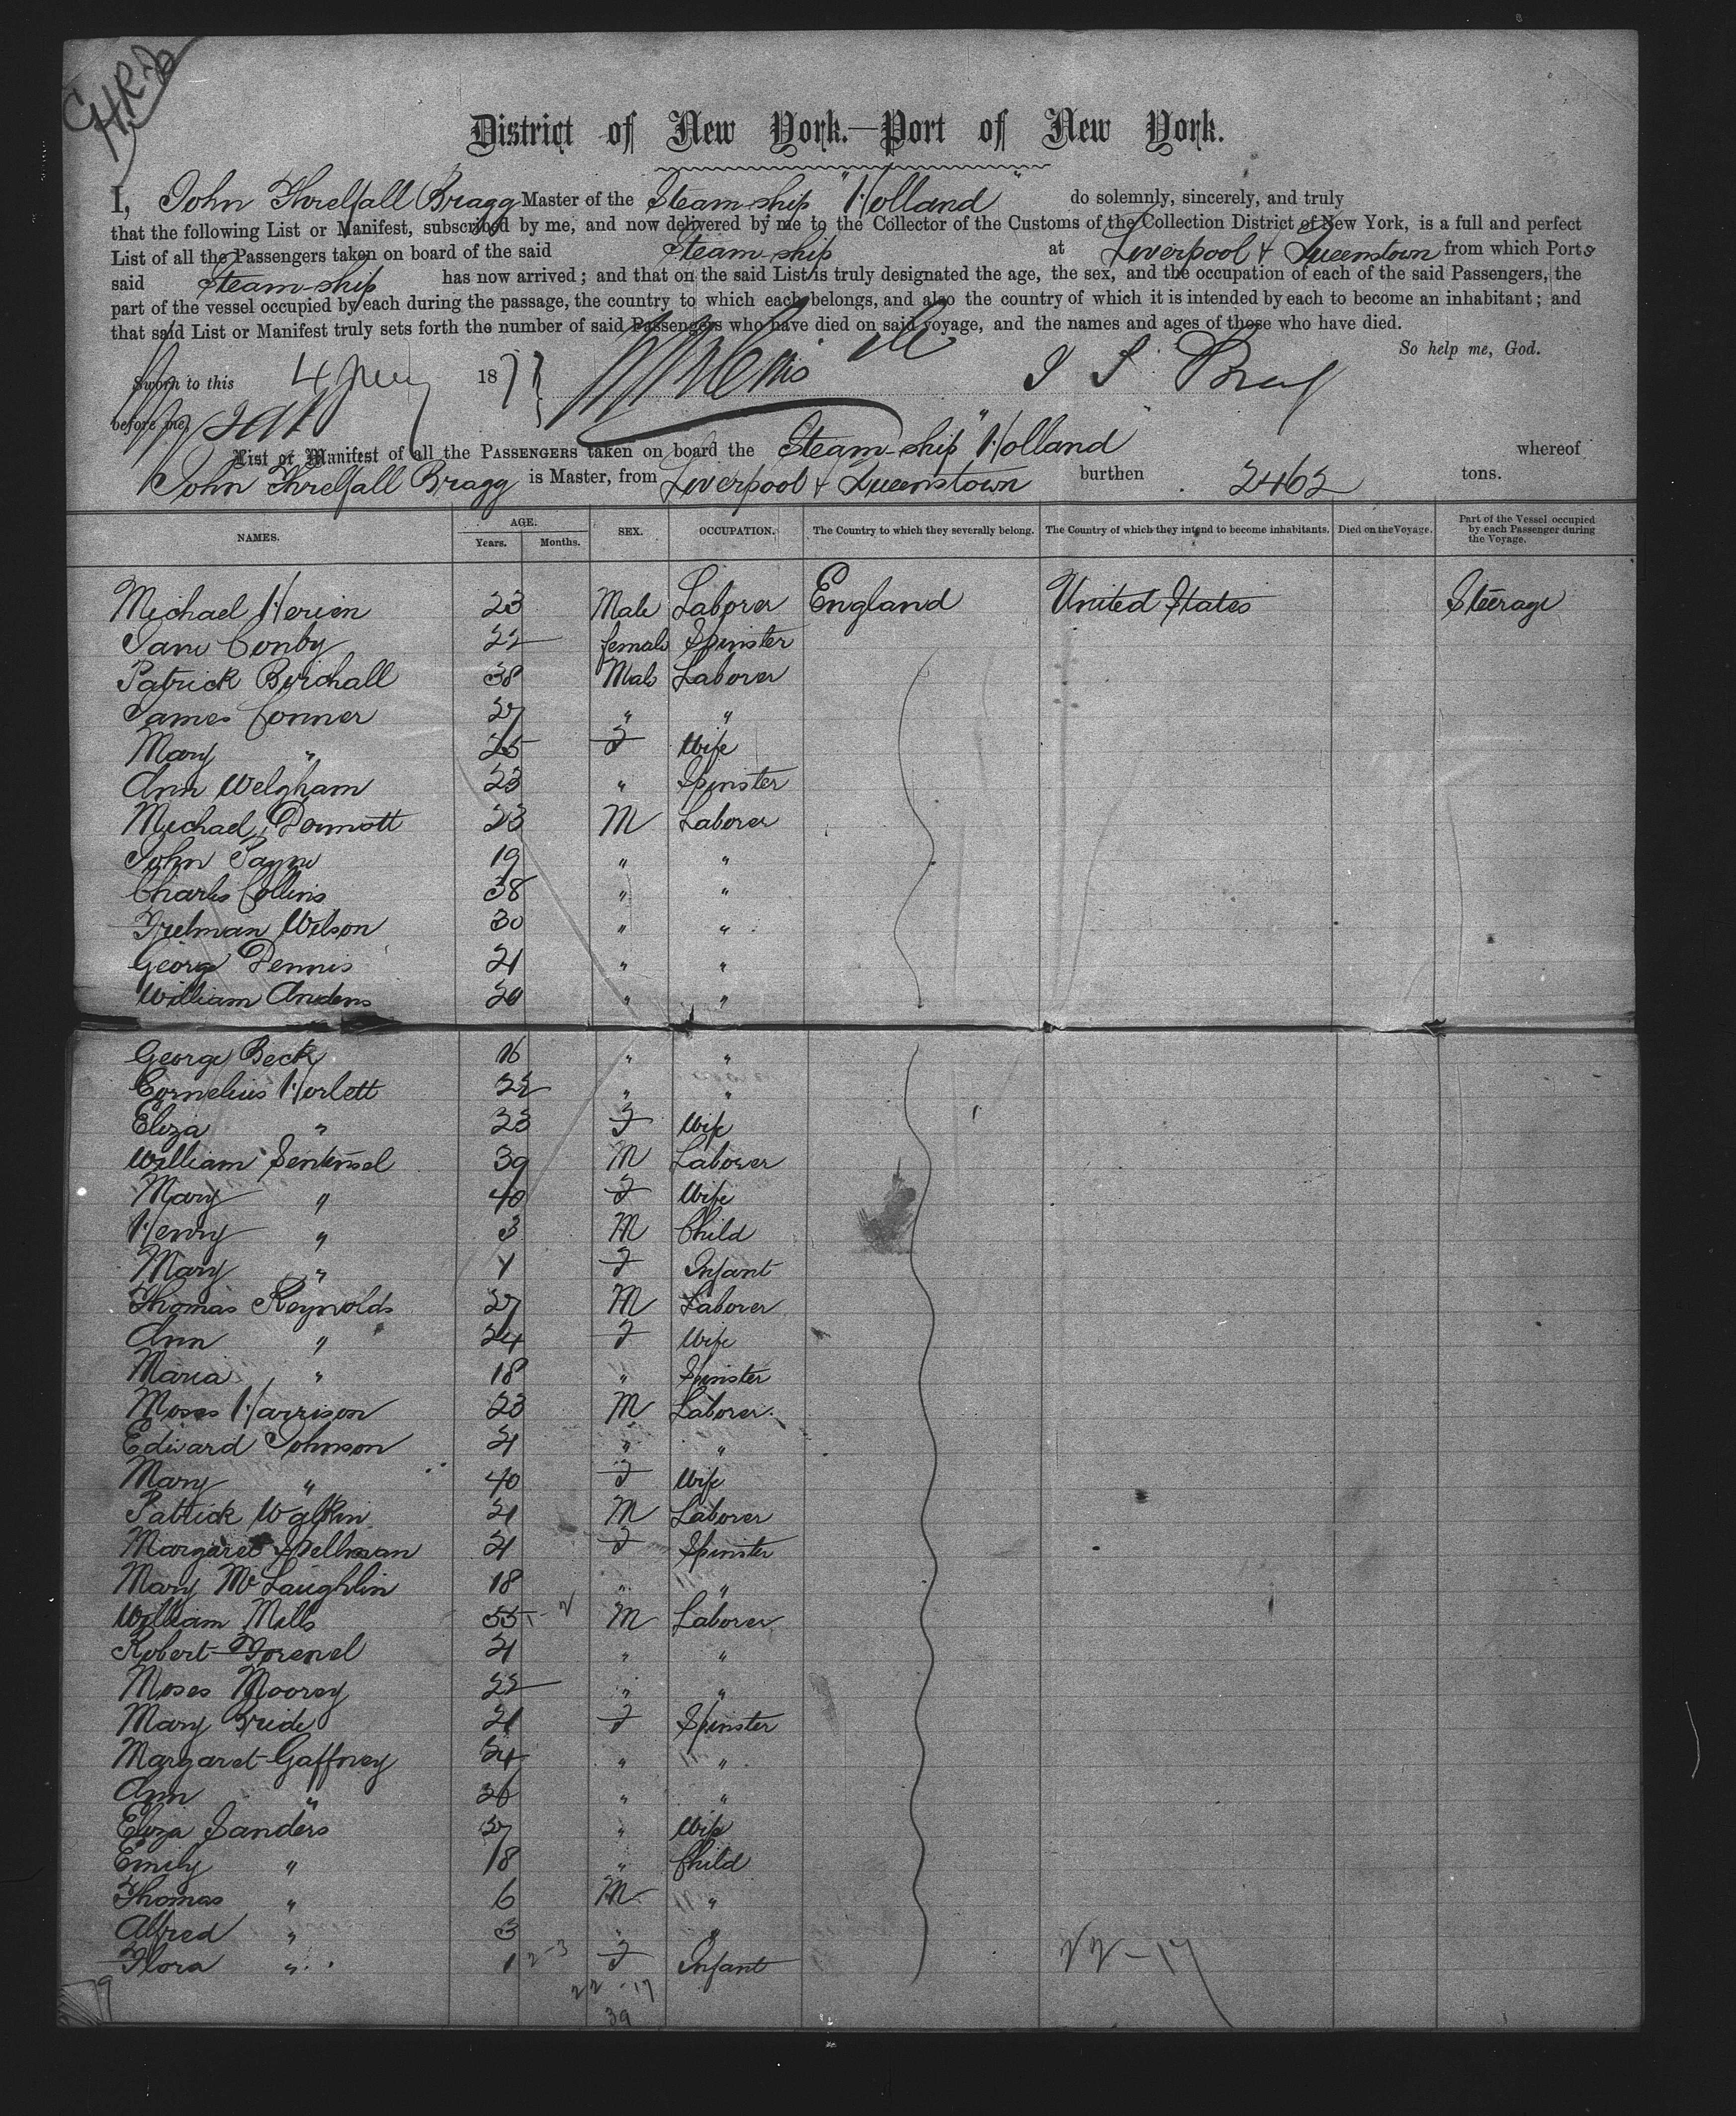 District of New York.—Port of New York.
I, John Threlfall Bragg Master of the Steam-ship "Holland" do solemnly, sincerely, and truly
that the following List or Manifest, subscribed by me, and now delivered by me to the Collector of the Customs of the Collection District of New York, is a full and perfect
List of all the Passengers taken on board of the said Steam-ship at Liverpool & Queenstown from which Ports
said Steam-ship has now arrived; and that on the said List is truly designated the age, the sex, and the occupation of each of the said Passengers, the
part of the vessel occupied by each during the passage, the country to which each belongs, and also the country of which it is intended by each to become an inhabitant; and
that said List or Manifest truly sets forth the number of said Passengers who have died on said voyage, and the names and ages of those who have died.
So help me, God.
Sworn to this 4 1877
before me,
List or Manifest of all the PASSENGERS taken on board the Steam-ship "Holland" whereof
John Threlfall Bragg is Master, from Liverpool & Queenstown burthen 2462 tons.
NAMES. AGE. Years. Months. SEX. OCCUPATION. The Country to which they severally belong. The Country of which they intend to become inhabitants. Died on the Voyage. Part of the Vessel occupied by each Passenger during the Voyage.
Michael 23 Male Laborer England United States Steerage
Jane Conby 22 female Spinster
Patrick Birchall 38 Male Laborer
James Conner 27 " "
Mary " 25 F Wife
Ann Welgham 23 " Spinster
Michael Dermott 23 M Laborer
John Payne 19 " "
Charles Collins 38 " "
Wilson 30 " "
George Dennis 21 " "
William 20 " "
George Beck 16 " "
Cornelius Horlett 22 " "
Eliza " 23 F Wife
William 39 M Laborer
Mary " 40 F Wife
Henry " 3 M Child
Mary " 1 F Infant
Thomas Reynolds 27 M Laborer
Ann " 24 F Wife
Maria " 18 " Spinster
Moses Harrison 23 M Laborer
Edward Johnson 21 " "
Mary " 40 F Wife
Patrick Walkin 21 M Laborer
Margaret Spellman 21 F Spinster
Mary McLaughlin 18 " "
William Mills 55 M Laborer
Robert 21 " "
Moses Moorey 22 " "
Mary Bride 21 F Spinster
Margaret Gaffney 24 " "
Ann " 26 " "
Eliza Sanders 27 " Wife
Emily " 18 " Child
Thomas " 6 M "
Alfred " 3 " "
Flora " 1 2-3 F Infant 22-17
22-17
39